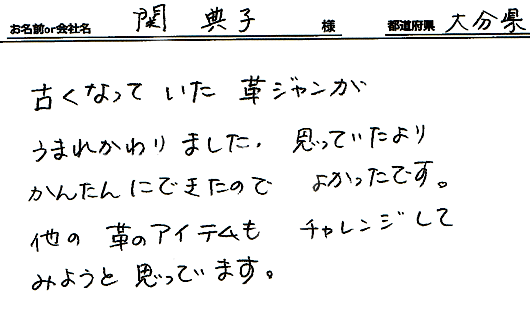 お名前or会社名 関 典子 様 都道府県 大分県
古くなって いた 革ジャンが
うまれかわり ました. 思っていたより
かんたんにできたので よかったです。
他の 革のアイテムも チャレンジして
みようと思っています。